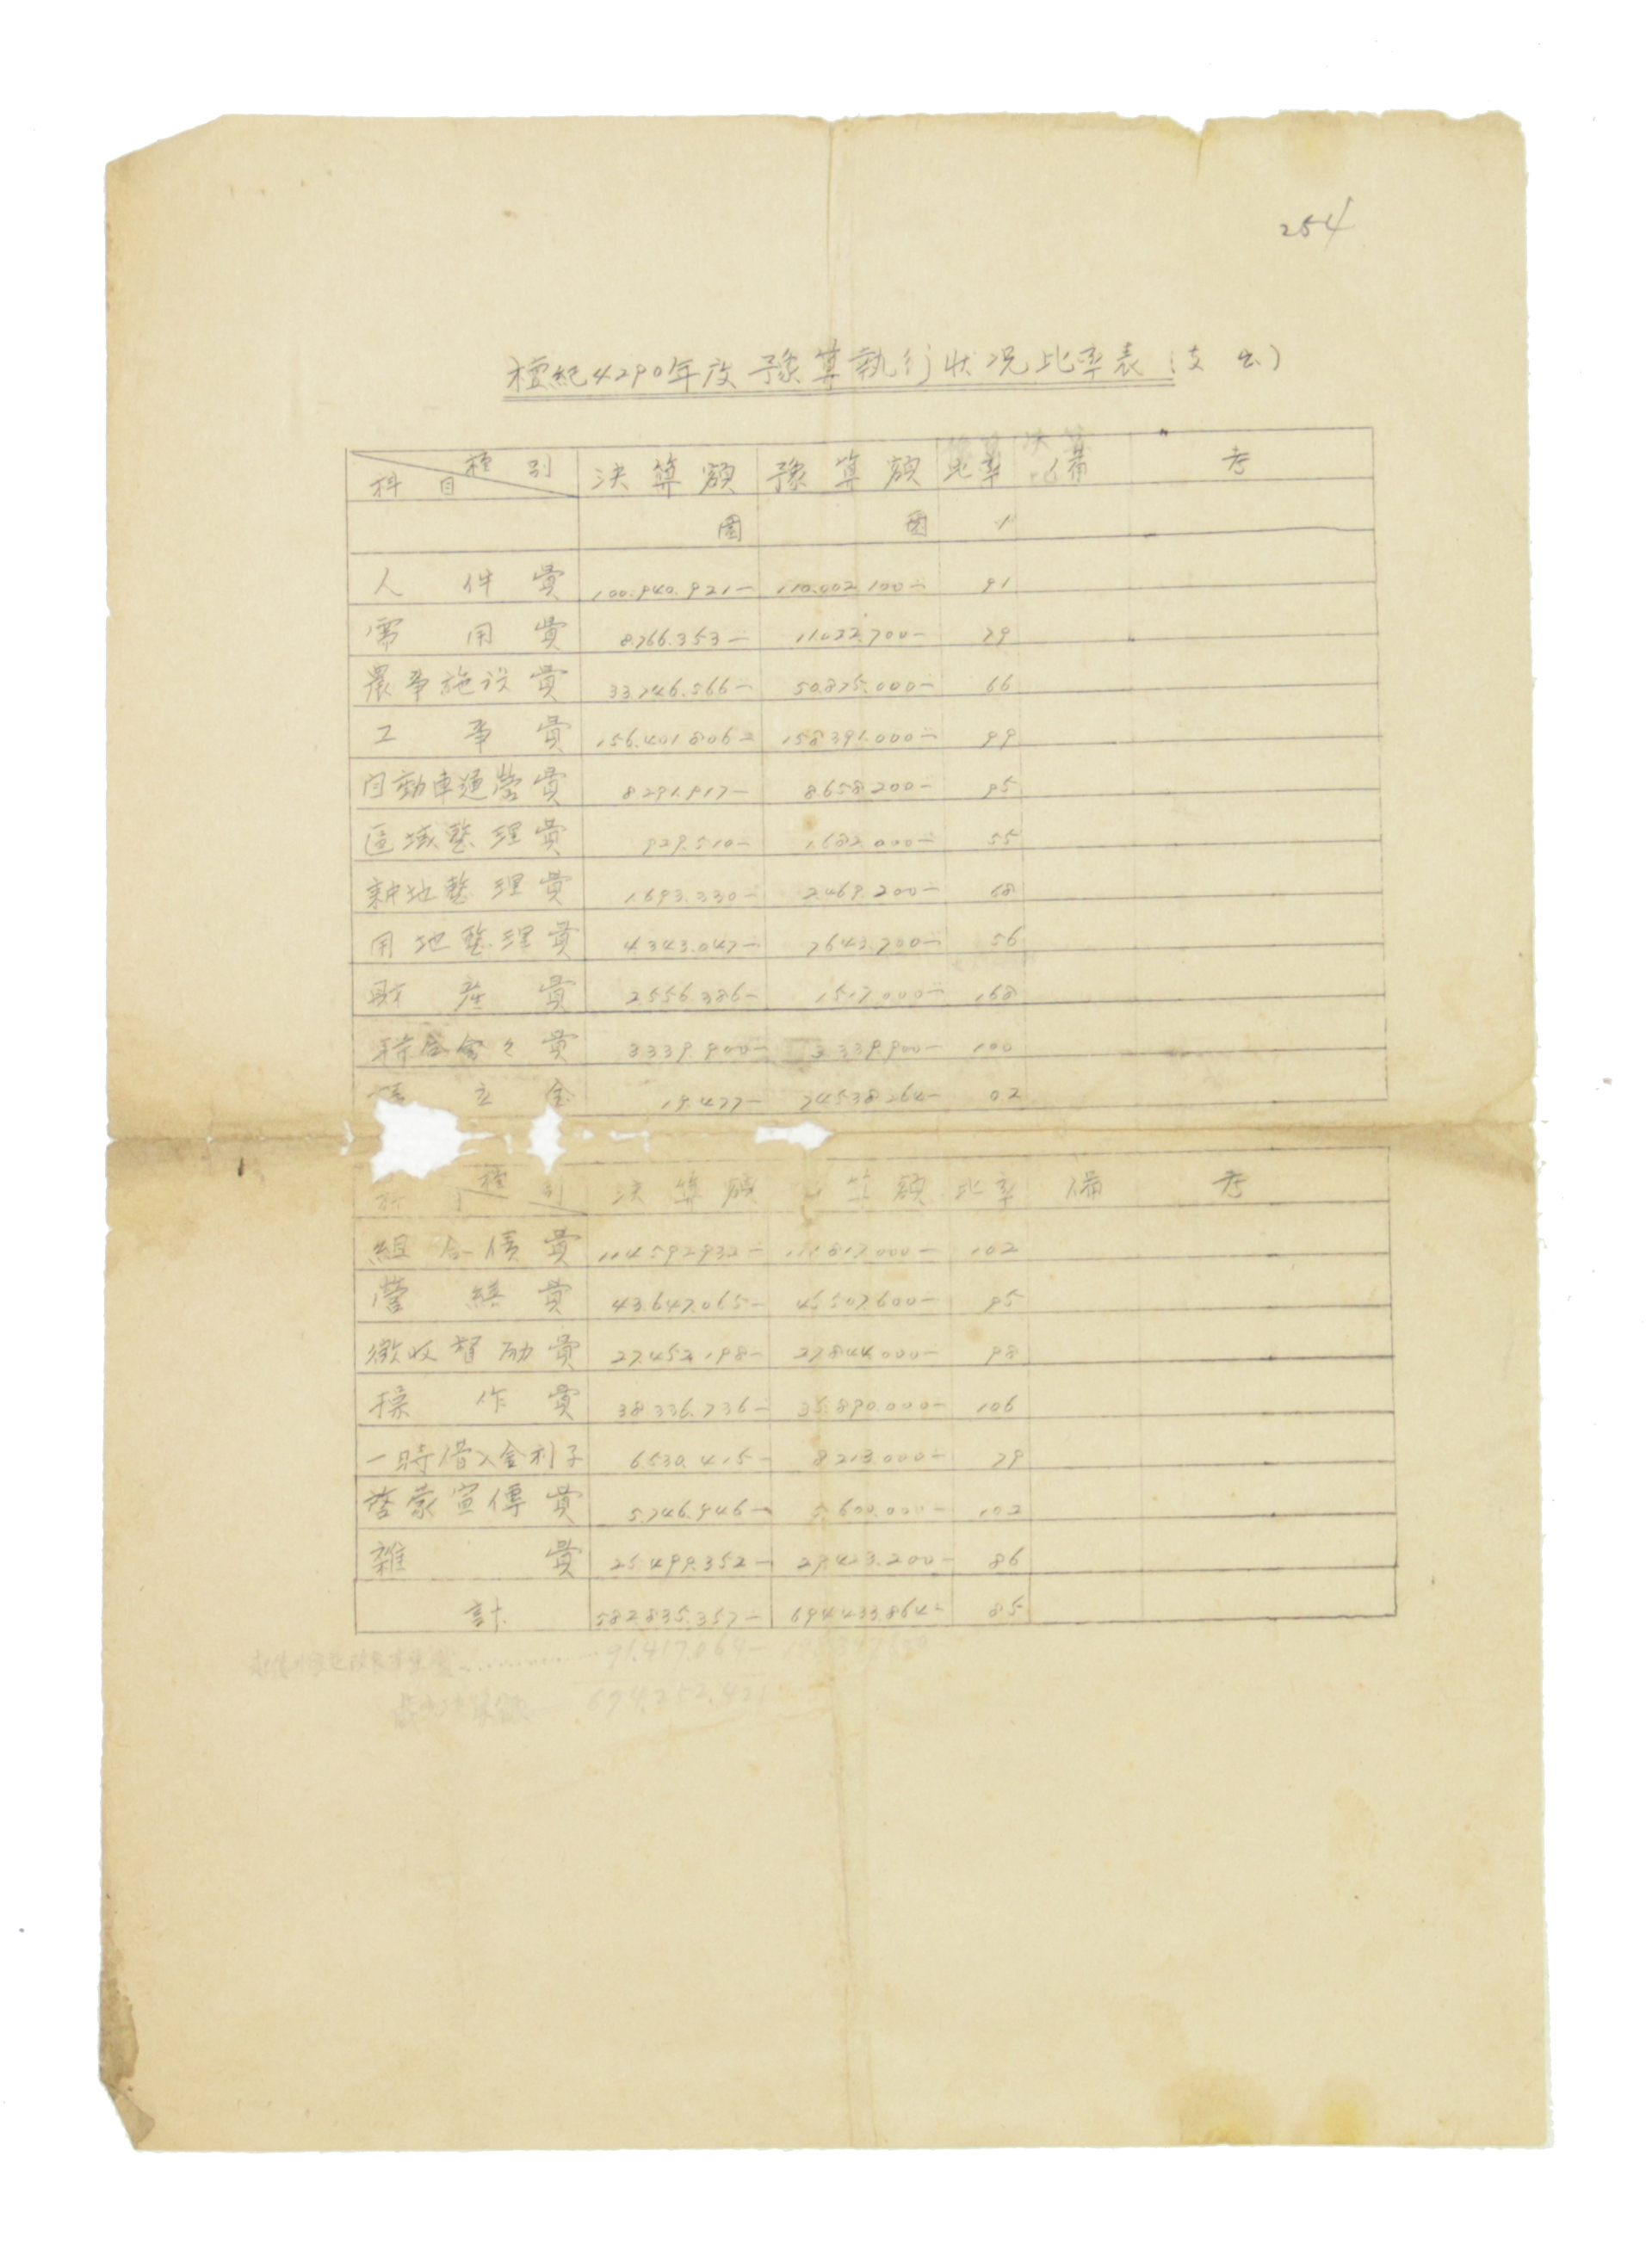 254
檀紀4290年度豫算執行狀况比率表(支出)
科目 種別 決算額 豫算額 比率 備考
圜 圜
人件費 100.940.921- 110.002.100- 91
需用費 8.766.353- 11.022.700- 79
農事施設費 33.746.566- 50.875.000- 66
工事費 156.401.806- 158.391.000- 99
自動車運營費 8.291.917- 8.658.200- 95
區域整理費 929.510- 1.682.000- 55
耕地整理費 1.693.330- 2.469.200- 68
用地整理費 4.343.047- 7.643.700- 56
財産費 2.556.386- 1.517.000- 168
會費 3.339.900- 3.339.900- 100
立金 19.477- 74538264- 02
種別 決算額 算額 比率 備考
組合債費 114592932- 111817000- 102
營繕費 43.647.065- 45.507.600- 95
徵收督励費 27.452.198- 27.844.000- 98
操作費 38.336.736- 35.890.000- 106
一時借入金利子 6.530.415- 8.213.000- 79
啓蒙宣傳費 5.746.946- 5.600.000- 102
雜費 25.499.352- 29.423.200- 86
計 582.835.357- 694.433.864- 85
91.417.064-
674.252.421